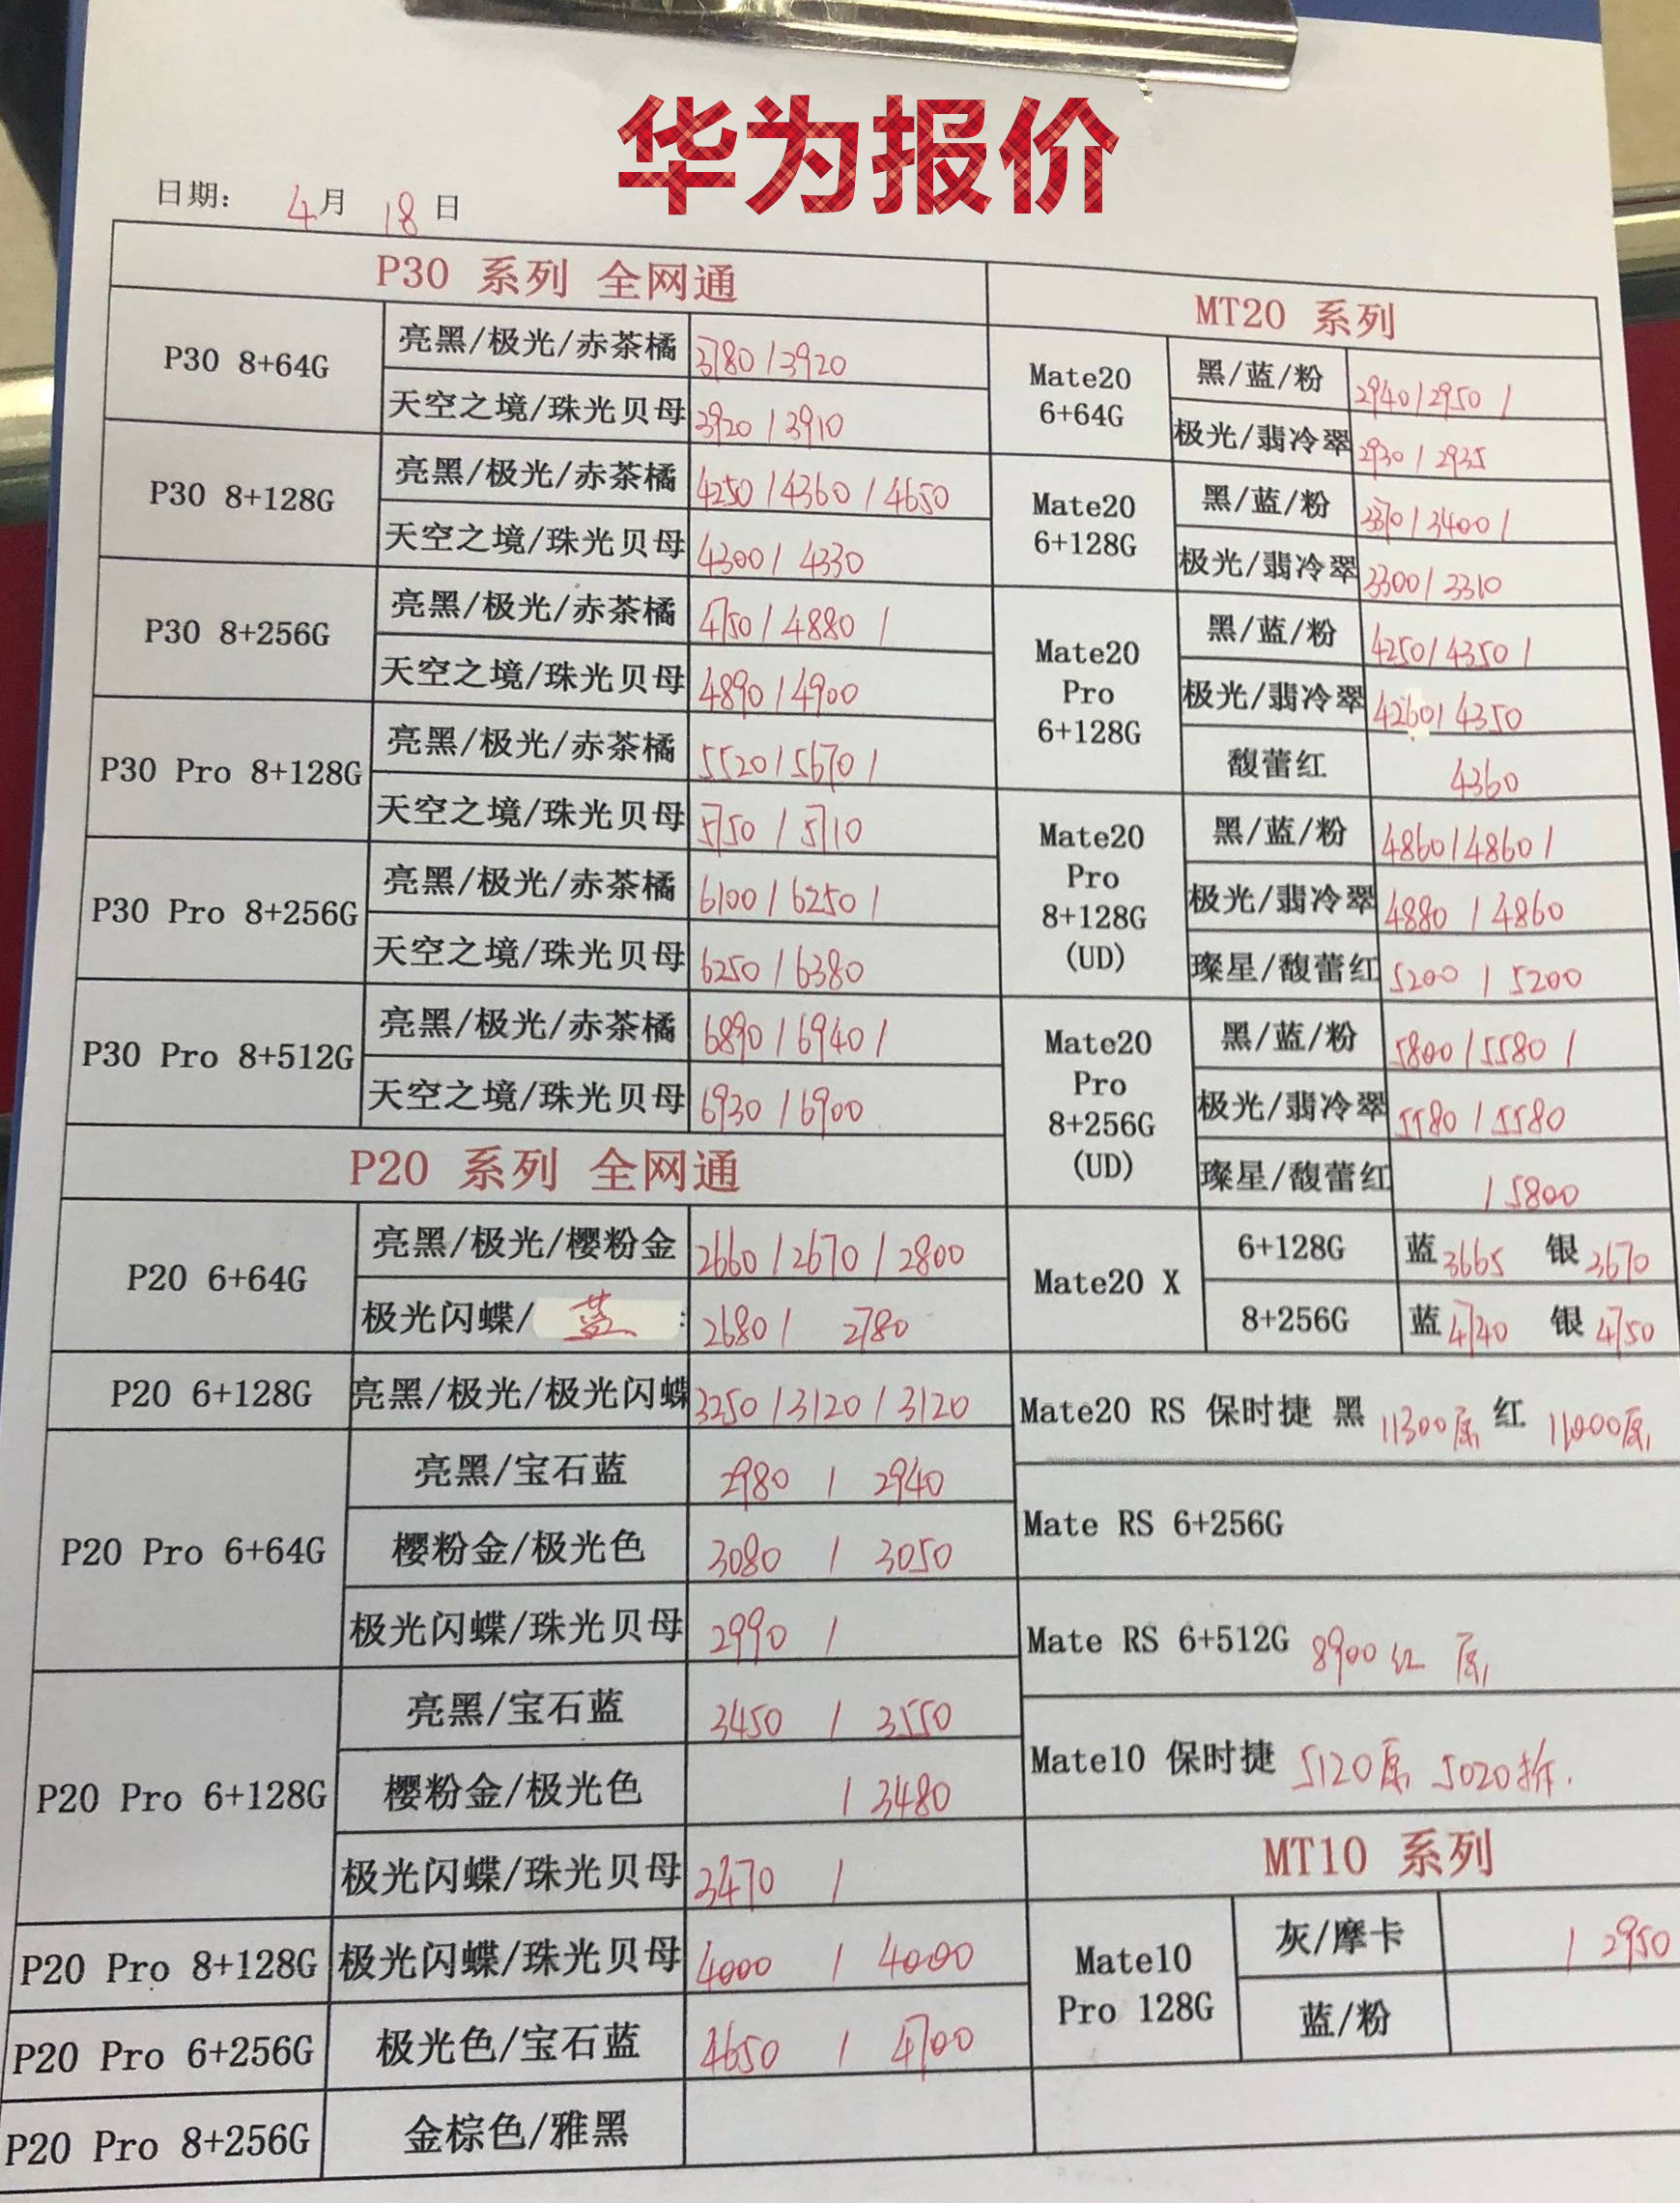 华为报价
日期： 4月 18日
P30 系列 全网通
P30 8+64G 亮黑/极光/赤茶橘 3780/3920
天空之境/珠光贝母 3920/3910
P30 8+128G 亮黑/极光/赤茶橘 4250/4360/4650
天空之境/珠光贝母 4300/4330
P30 8+256G 亮黑/极光/赤茶橘 4750/4880/
天空之境/珠光贝母 4890/4900
P30 Pro 8+128G 亮黑/极光/赤茶橘 5520/5670/
天空之境/珠光贝母 5750/5710
P30 Pro 8+256G 亮黑/极光/赤茶橘 6100/6250/
天空之境/珠光贝母 6250/6380
P30 Pro 8+512G 亮黑/极光/赤茶橘 6890/6940/
天空之境/珠光贝母 6930/6900
P20 系列 全网通
P20 6+64G 亮黑/极光/樱粉金 2660/2670/2800
极光闪蝶/蓝: 2680/ 2780
P20 6+128G 亮黑/极光/极光闪蝶 3250/3120/3120
P20 Pro 6+64G 亮黑/宝石蓝 2980 / 2940
樱粉金/极光色 3080 / 3050
极光闪蝶/珠光贝母 2990 /
P20 Pro 6+128G 亮黑/宝石蓝 3450 / 3550
樱粉金/极光色 / 3480
极光闪蝶/珠光贝母 3470 /
P20 Pro 8+128G 极光闪蝶/珠光贝母 4000 / 4000
P20 Pro 6+256G 极光色/宝石蓝 4650 / 4700
P20 Pro 8+256G 金棕色/雅黑
MT20 系列
Mate20 6+64G 黑/蓝/粉 2940/2950/
极光/翡冷翠 2930/2935
Mate20 6+128G 黑/蓝/粉 3370/3400/
极光/翡冷翠 3300/3310
Mate20 Pro 6+128G 黑/蓝/粉 4250/4350/
极光/翡冷翠 4260/4350
馥蕾红 4360
Mate20 Pro 8+128G (UD) 黑/蓝/粉 4860/4860/
极光/翡冷翠 4880/4860
璨星/馥蕾红 5200/5200
Mate20 Pro 8+256G (UD) 黑/蓝/粉 5800/5580/
极光/翡冷翠 5580/5580
璨星/馥蕾红 /5800
Mate20 X 6+128G 蓝3665 银3670
8+256G 蓝4740 银4750
Mate20 RS 保时捷 黑 11300原 红 11000原
Mate RS 6+256G
Mate RS 6+512G 8900 红 原
Mate10 保时捷 5120原 5020拆.
MT10 系列
Mate10 Pro 128G 灰/摩卡 / 2950
蓝/粉